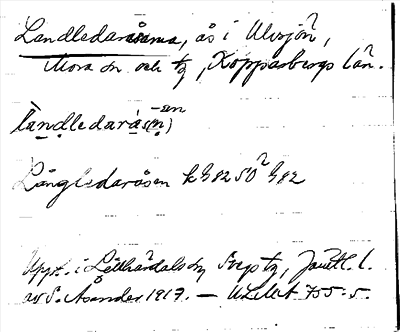 Landledaråsarna, ås i Ulvsjön,
Mora sn och tg, Kopparbergs län.
landledarås(n) -en
Långledaråsen k 482 SO 482
Uppt. i Lillhärdals sn, Svegs tg, Jämtl. l.
av S. Åsander 1917. — ULMA 755:5.